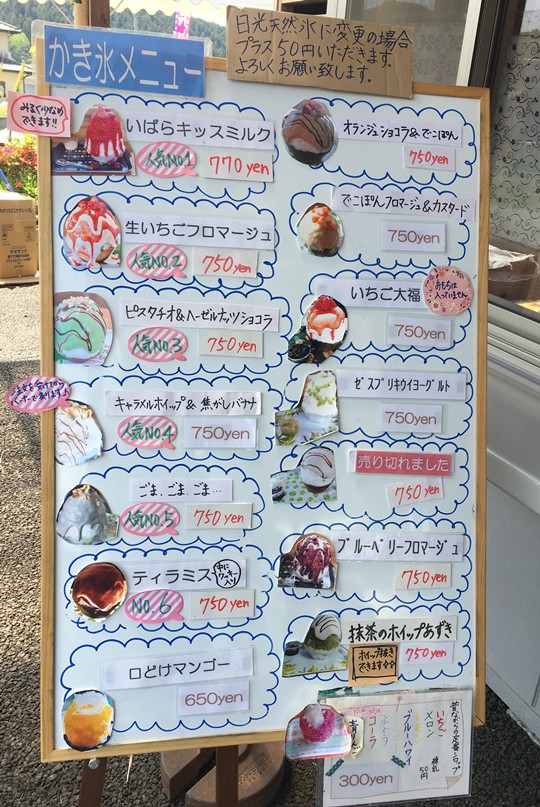 かき氷メニュー
日光天然氷に変更の場合
プラス50円いただきます。
よろしくお願い致します。
みるくぬりなめ
できます!!
いばらキッスミルク
人気No.1
770yen
生いちごフロマージュ
人気No.2
750yen
ピスタチオ&ヘーゼルナッツショコラ
人気No.3
750yen
ご注文を受けてから
バーナーで炙ります♪
キャラメルホイップ&焦がしバナナ
人気No.4
750yen
ごま、ごま、ごま…
人気No.5
750yen
ティラミス
中に
クッキー
入り
No.6
750yen
口どけマンゴー
650yen
オランジュショコラ&でこぽん
750yen
でこぽんフロマージュ&カスタード
750yen
いちご大福
おもちは
入っていません。
750yen
ゼスプリキウイヨーグルト
750yen
売り切れました
750yen
ブルーベリーフロマージュ
750yen
抹茶のホイップあずき
ホイップ抜き
できます☆☆
750yen
昔ながらの定番シロップ
いちご
メロン
ブルーハワイ
ぶどう
コーラ
練乳
50円
300yen